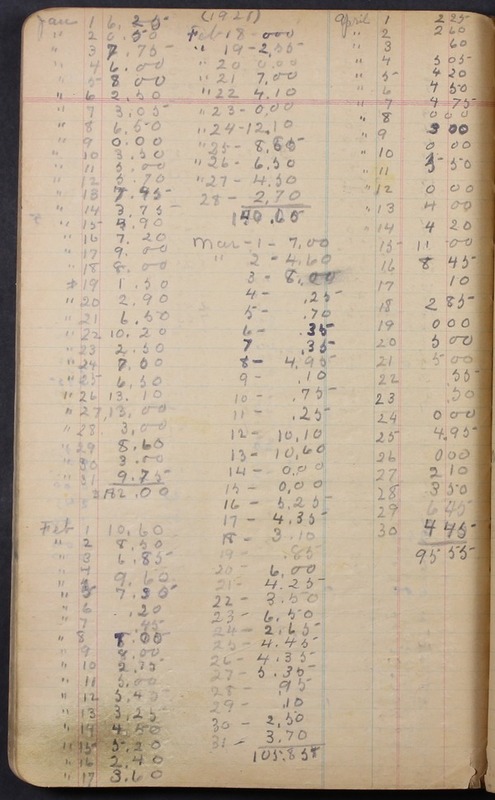 Jan 1 6.25
" 2 0.50
" 3 7.75
" 4 6.00
" 5 8.00
" 6 2.50
" 7 3.05
" 8 6.50
" 9 0.00
" 10 3.50
" 11 5.00
" 12 5.70
" 13 7.95
" 14 3.75
" 15 4.90
" 16 7.20
" 17 9.00
" 18 8.00
" 19 1.50
" 20 2.90
" 21 6.50
" 22 10.20
" 23 2.50
" 24 7.00
" 25 6.50
" 26 13.10
" 27 13.00
" 28 3.00
" 29 8.60
" 30 3.00
" 31 9.75
182.00
Feb 1 10.60
" 2 8.50
" 3 6.85
" 4 9.60
" 5 7.30
" 6 .20
" 7 .45
" 8 8.00
" 9 9.00
" 10 2.75
" 11 5.00
" 12 5.40
" 13 3.25
" 14 4.50
" 15 5.20
" 16 2.40
" 17 3.60
(1928)
Feb 18 - 000
" 19 - 2.55
" 20 0.00
" 21 7.00
" 22 4.10
" 23 - 0.00
" 24 - 12.10
" 25 - 8.65
" 26 - 6.50
" 27 - 4.50
28 - 2.70
140.65
Mar - 1 - 7.00
" 2 - 4.60
3 - 8.00
4 - .25
5 - .70
6 - .35
7 .35
8 - 4.95
9 - .10
10 - .75
11 - .25
12 - 10.10
13 - 10.60
14 - 0.00
15 - 0.00
16 - 5.25
17 - 4.35
18 - 3.10
19 - .85
20 - 6.00
21 - 4.25
22 - 3.50
23 - 6.50
24 - 2.65
25 - 4.45
26 - 4.35
27 - 5.35
28 - .95
29 - .10
30 - 2.50
31 - 3.70
105.85
April 1 2 25
" 2 2 60
" 3 60
" 4 5 05
" 5 4 20
" 6 4 50
" 7 4 75
" 8 0 00
" 9 3 00
" 10 0 00
" 11 5 50
" 12 0 00
" 13 4 00
" 14 4 20
15 - 11 00
16 8 45
17 10
18 2 85
19 0 00
20 5 00
21 5 00
22 55
23 50
24 0 00
25 4.95
26 0 00
27 2 10
28 3 50
29 6 45
30 4 45
95 55